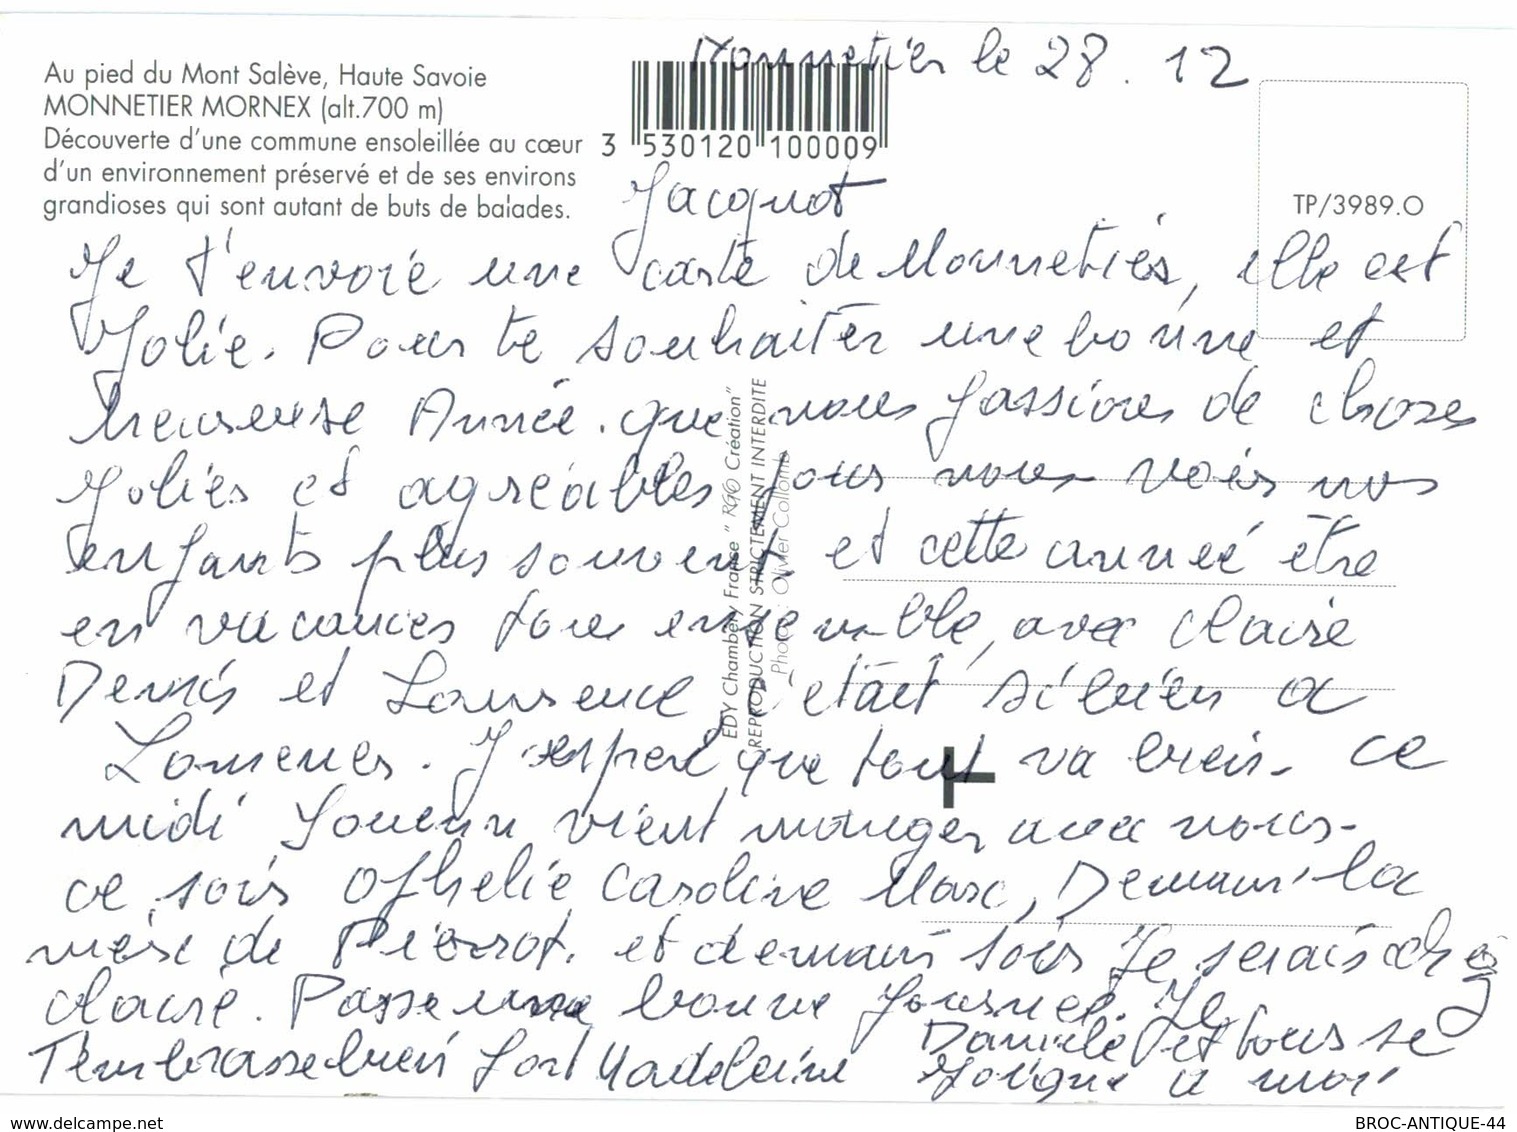 Monnetier le 28.12
Au pied du Mont Salève, Haute Savoie
MONNETIER MORNEX (alt.700 m)
Découverte d'une commune ensoleillée au cœur
d'un environnement préservé et de ses environs
grandioses qui sont autant de buts de balades.
3 530120 100009
TP/3989.O
Jacquot
Je t'envoie une carte de Monnetier, elle est
Jolie. Pour te souhaiter une bonne et
heureuse Année. que nous fassions de choses
Jolies et agréables tous nous voir nos
enfants plus souvent et cette année être
en vacances tous ensemble, avec Claire
Denis et Laurence, c'était si bien a
. J'espere que tout va bien. ce
midi vient manger avec nous.
ce soir Ophelie Caroline Marc, Demain la
mère de Pierrot. et demain soir Je serais chez
Claire. Passe une bonne Journee. Je
T'embrasse bien fort Madeleine
Daniele et tous se
Joigne a moi
EDY Chambéry France " RGO Création"
REPRODUCTION STRICTEMENT INTERDITE
Photo : Olivier Collomb
www.delcampe.net
BROC-ANTIQUE-44